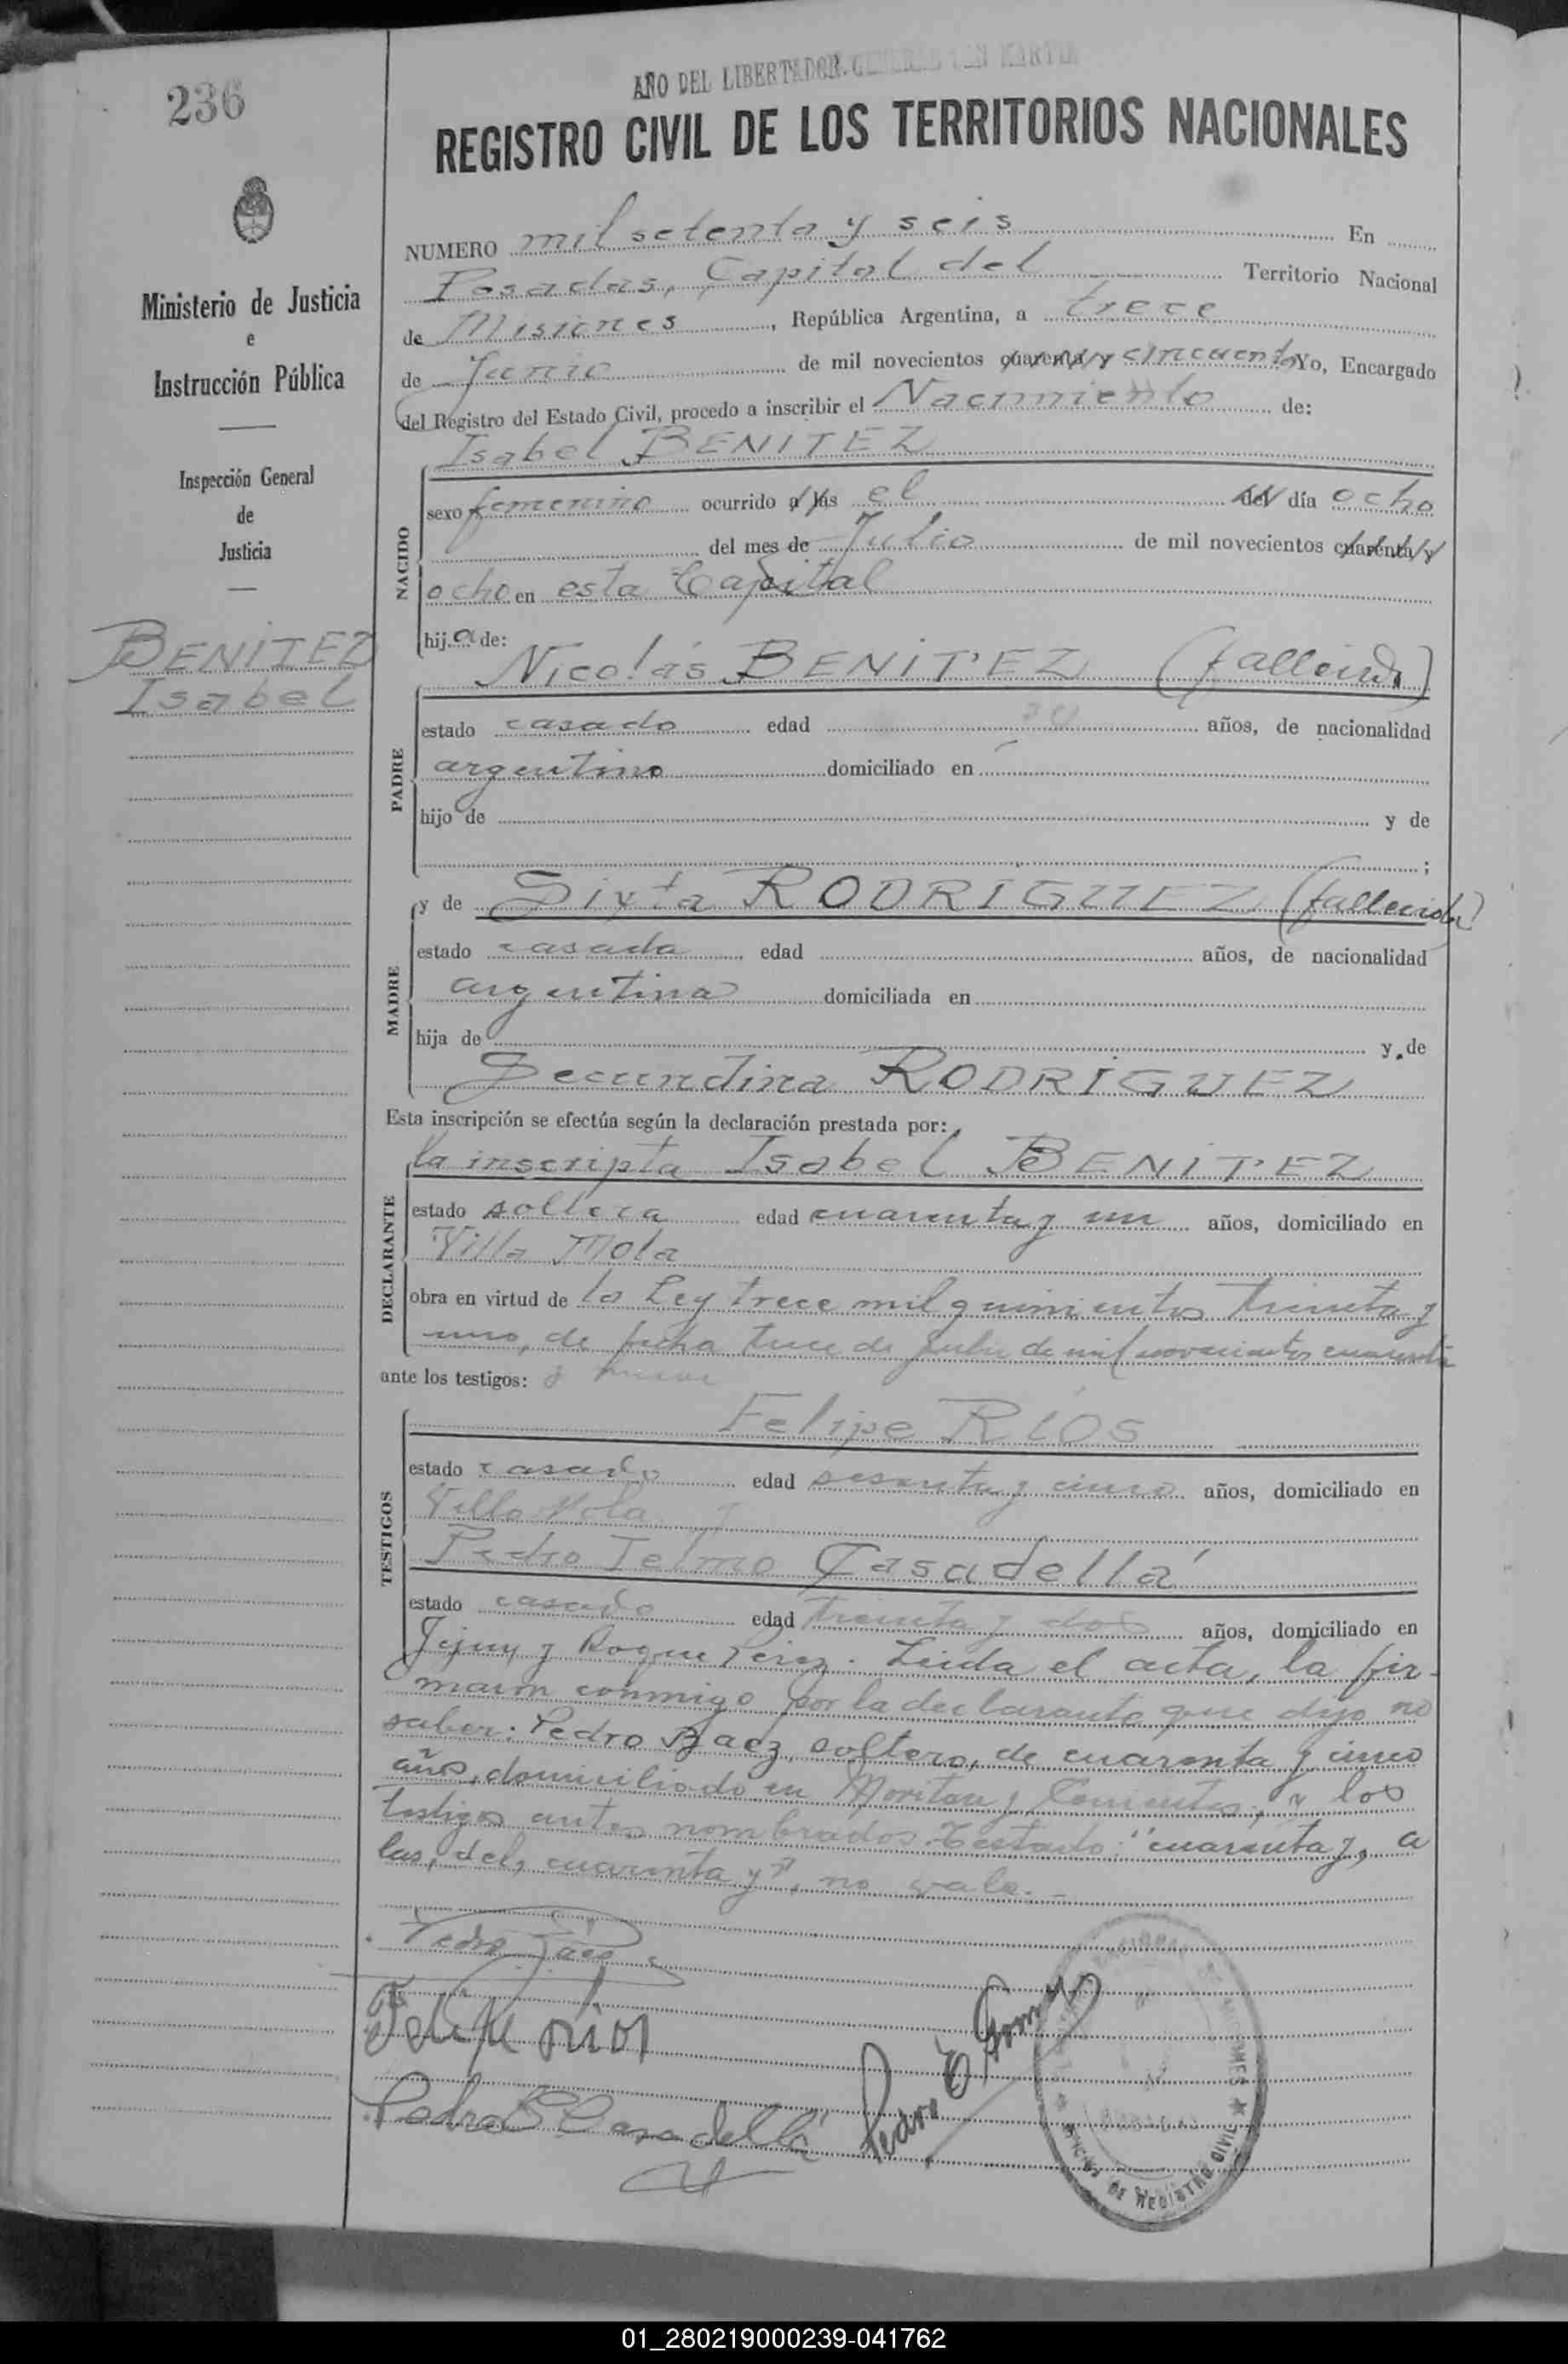 236
AÑO DEL LIBERTADOR GENERAL SAN MARTIN
REGISTRO CIVIL DE LOS TERRITORIOS NACIONALES
Ministerio de Justicia
e
Instrucción Pública
Inspección General
de
Justicia
BENÍTEZ
Isabel
NUMERO mil setenta y seis En
Posadas, Capital del Territorio Nacional
de Misiones, República Argentina, a trece
de Junio de mil novecientos cuarenta y cincuenta Yo, Encargado
del Registro del Estado Civil, procedo a inscribir el Nacimiento de:
Isabel BENITEZ
NACIDO
sexo femenino ocurrido a las el del día ocho
del mes de Julio de mil novecientos cuarenta y
ocho en esta Capital
hija de:
Nicolás BENÍTEZ (fallecido)
PADRE
estado casado edad años, de nacionalidad
argentino domiciliado en
hijo de y de
;
MADRE
y de Sixta RODRÍGUEZ (fallecida)
estado casada edad años, de nacionalidad
argentina domiciliada en
hija de y de
Secundina RODRÍGUEZ
Esta inscripción se efectúa según la declaración prestada por:
DECLARANTE
la inscripta Isabel BENÍTEZ
estado soltera edad cuarenta y un años, domiciliado en
Villa Mola
obra en virtud de la Ley trece mil quinientos treinta y
uno, de fecha trece de Julio de mil novecientos cuarenta
ante los testigos: y nueve
TESTIGOS
Felipe RÍOS
estado casado edad sesenta y cinco años, domiciliado en
Villa Mola y
Pedro Telmo Casadellá
estado casado edad treinta y dos años, domiciliado en
Jujuy y Roque Pérez. Leída el acta, la fir-
maron conmigo por la declarante que dijo no
saber: Pedro Baez, soltero, de cuarenta y cinco
años, domiciliado en y Corrientes, y los
testigos antes nombrados. Testado: "cuarenta y, a
las, del, cuarenta y", no vale.-
Pedro Báez
Felipe Rios
Pedro Casadellá
Pedro E. Gomez
MISIONES
OFICINA DE REGISTRO CIVIL
01_280219000239-041762